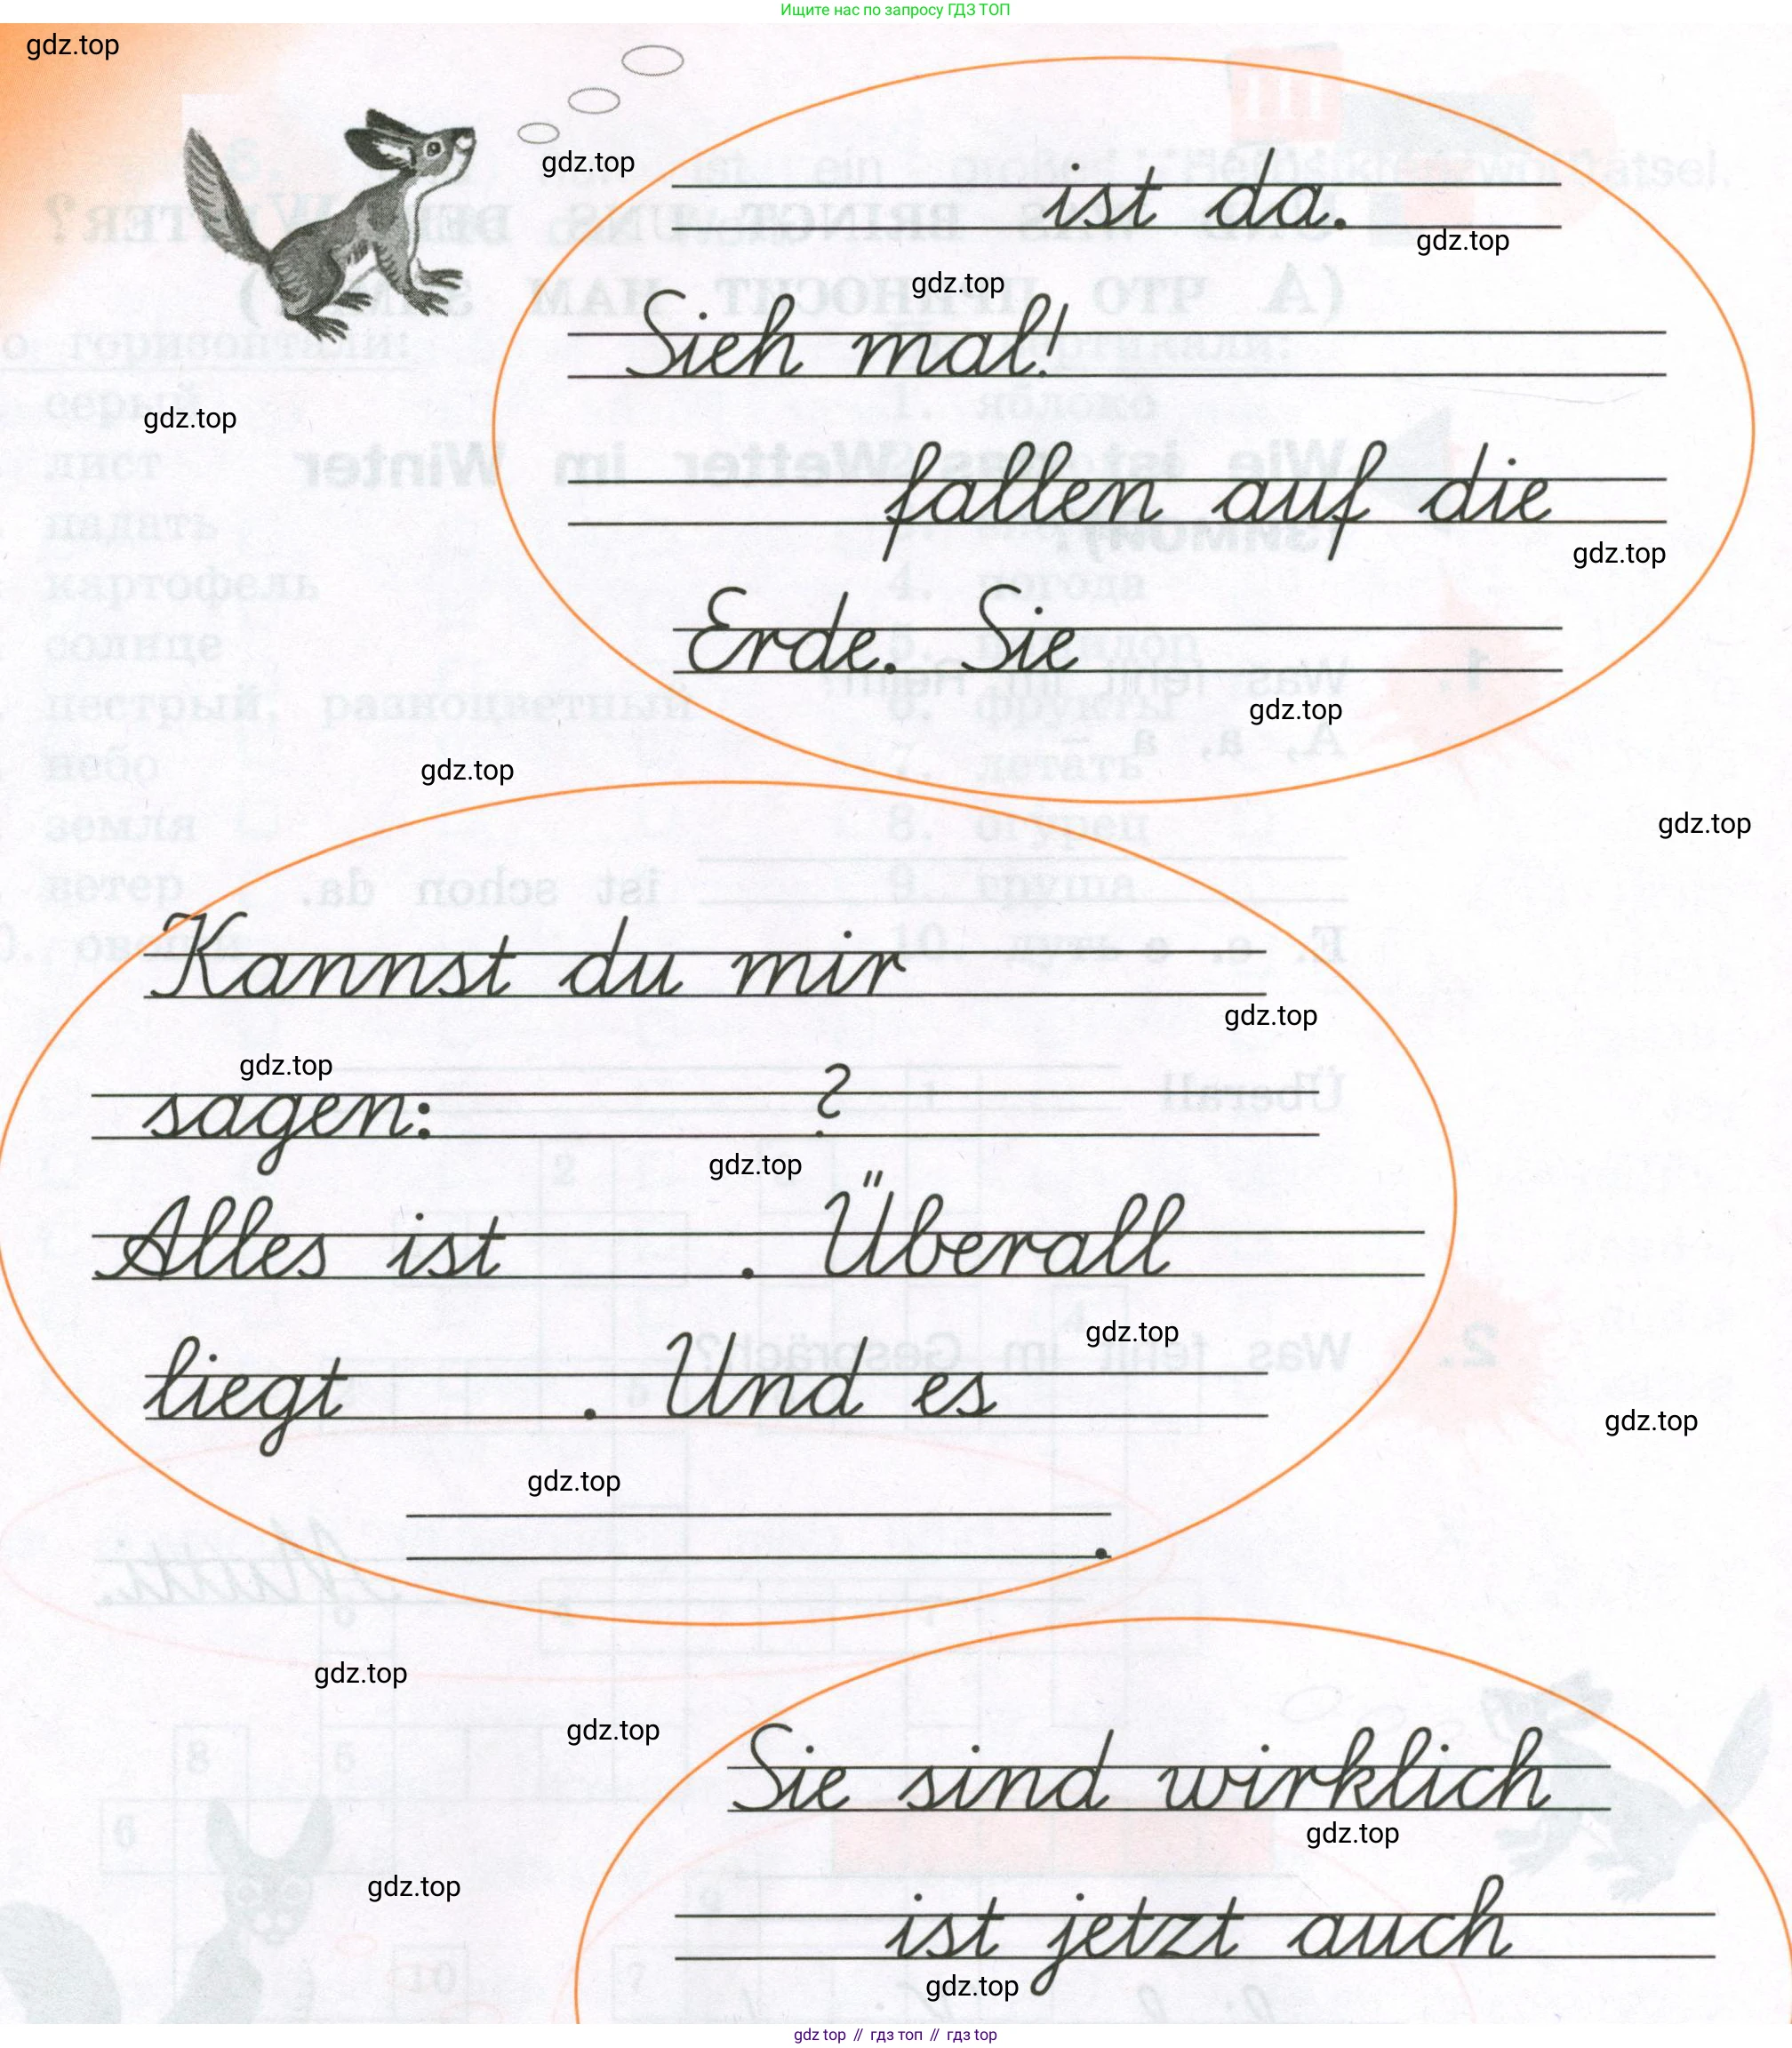 Ищите нас по запросу ГДЗ ТОП
gdz.top
gdz.top
ist da.
gdz.top
gdz.top
Sieh mal!
gdz.top
fallen auf die
gdz.top
Erde. Sie
gdz.top
gdz.top
gdz.top
Kannst du mir
gdz.top
gdz.top
sagen: ?
gdz.top
Alles ist . Überall
gdz.top
liegt . Und es
gdz.top
gdz.top
.
gdz.top
gdz.top
Sie sind wirklich
gdz.top
gdz.top
ist jetzt auch
gdz.top
gdz top // гдз топ // гдз top